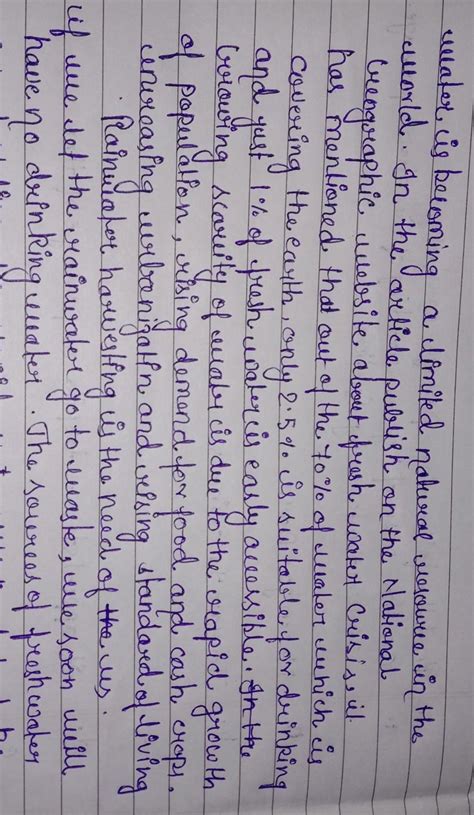 water is becoming a limited natural resource in the
world. In the article publish on the National
Geographic website about fresh water crisis, it
has mentioned that out of the 70% of water which is
covering the earth, only 2.5% is suitable for drinking
and just 1% of fresh water is easily accessible. In the
Growing scarcity of water is due to the rapid growth
of population, rising demand for food and cash crops.
increasing urbanization and rising standard of living
. Rainwater harvesting is the need of the us.
if we let the rainwater go to waste, we soon will
have no drinking water. The sources of fresh water